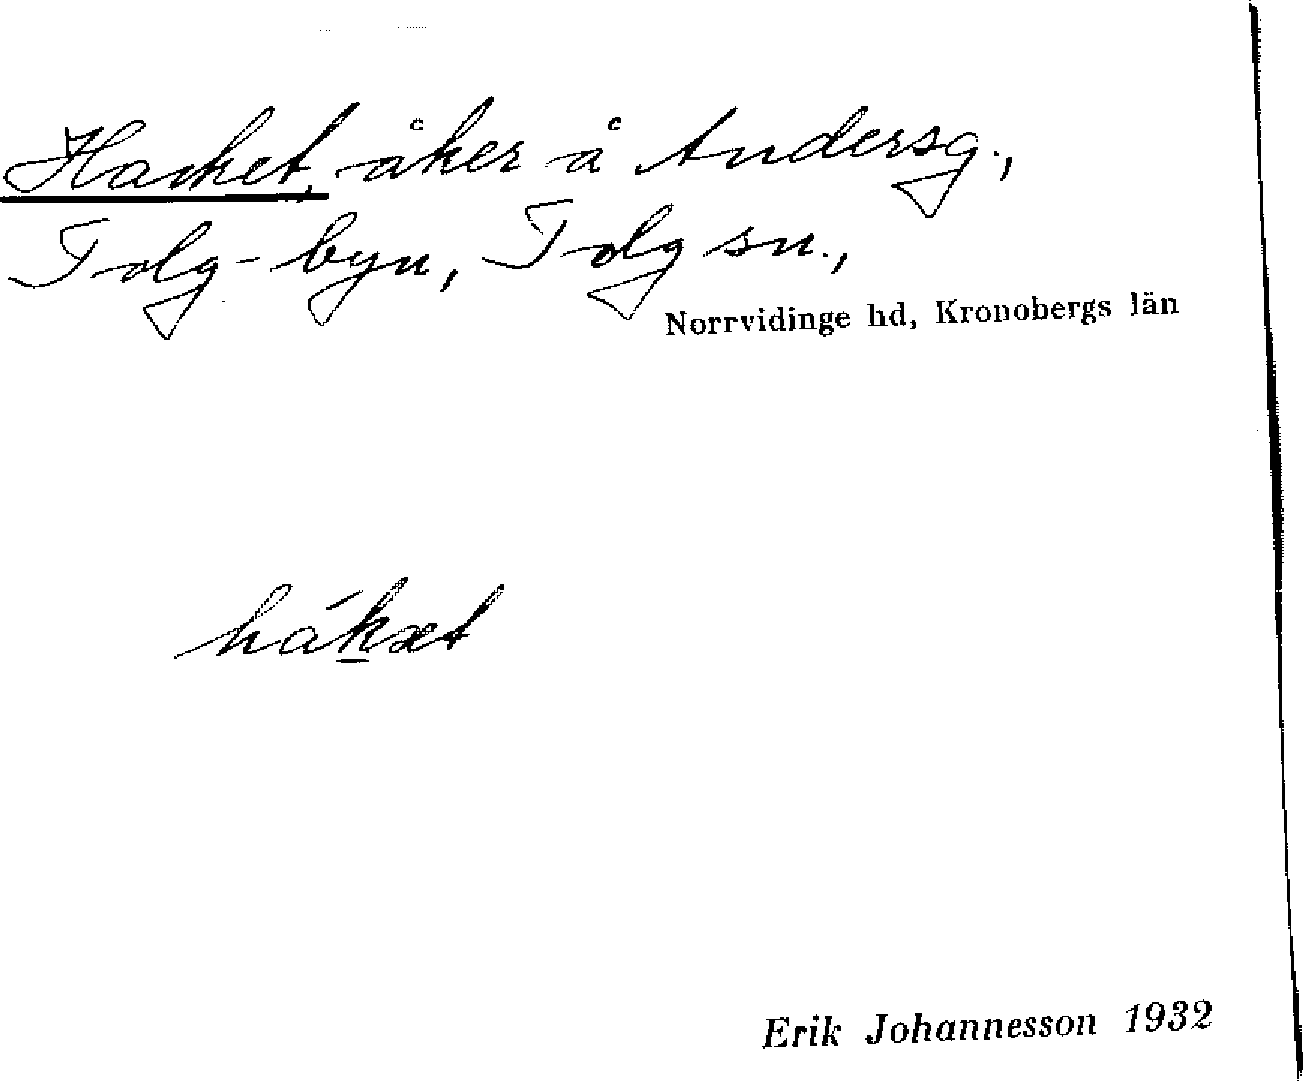 Hacket, åker å Andersg.,
Tolg-byn, Tolg sn.,
Norrvidinge hd, Kronobergs län
hák̲æt
Erik Johannesson 1932